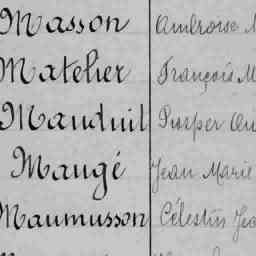 Masson Ambroise
Matelier François M
Mauduit Prosper
Maugé Jean Marie
Maumusson Célestin